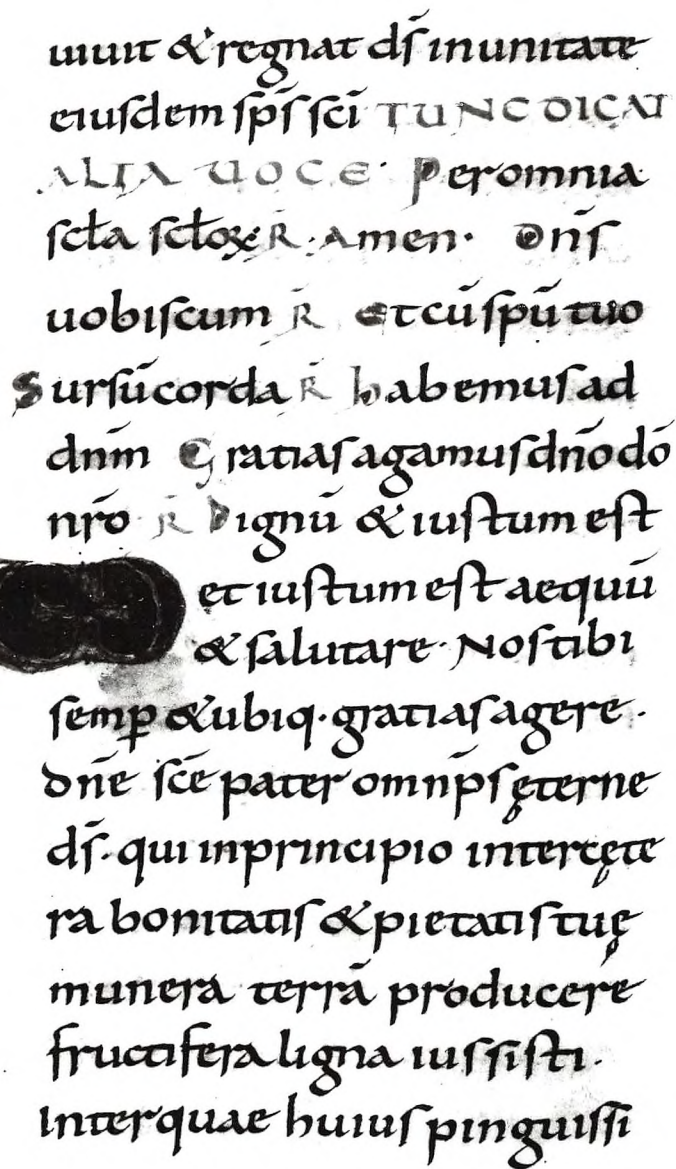 uiuit & regnat dſ̄ in unitate
eiuſdem ſp̄ſ ſcī TUNC DICAT
ALTA UOCE· Per omnia
ſcła ſcłoꝝ R̄· Amen· Dn̄ſ
uobiſcum R̄ Et cū ſpū tuo
Surſū corda R̄ habemuſ ad
dnm̄ Gratiaſ agamuſ dn̄o dō
nr̄o R̄ Dignū & iuſtum eſt
et iuſtum eſt aequū
& ſalutare· Noſ tibi
ſemꝑ & ubiq· gratiaſ agere·
Dn̄e ſcē pater omnp̄ſ ęterne
dſ̄· qui in principio inter cęte
ra bonitatiſ & pietatiſ tuę
munera terrā producere
fructifera ligna iuſſiſti·
Inter quae huiuſ pinguiſſi